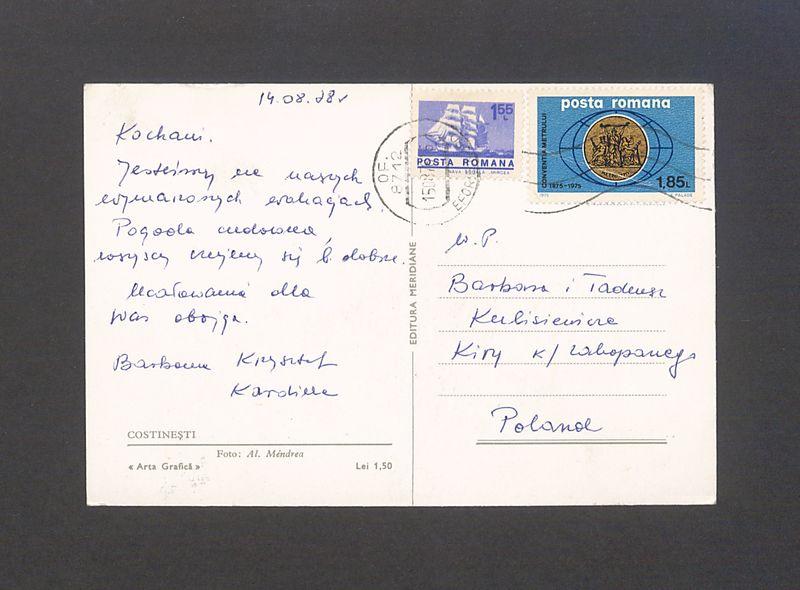 14.08.78r
Kochani.
Jesteśmy na naszych
wymarzonych wakacjach.
Pogoda cudowna,
wszyscy czujemy się b. dobrze.
Ucałowania dla
Was obojga.
Barbara Krzysztof
Karolina
COSTINEȘTI
Foto: Al. Méndrea
« Arta Grafică »
Lei 1,50
EDITURA MERIDIANE
1,55 L
POSTA ROMANA
NAVA ȘCOALĂ „MIRCEA”
OF.
8712
EFORI
posta romana
CONVENTIA METRULUI
1875-1975
1,85L
1975
W.P.
Barbara i Tadeusz
Kubisiewicz
Kiry k/Zakopanego
Poland